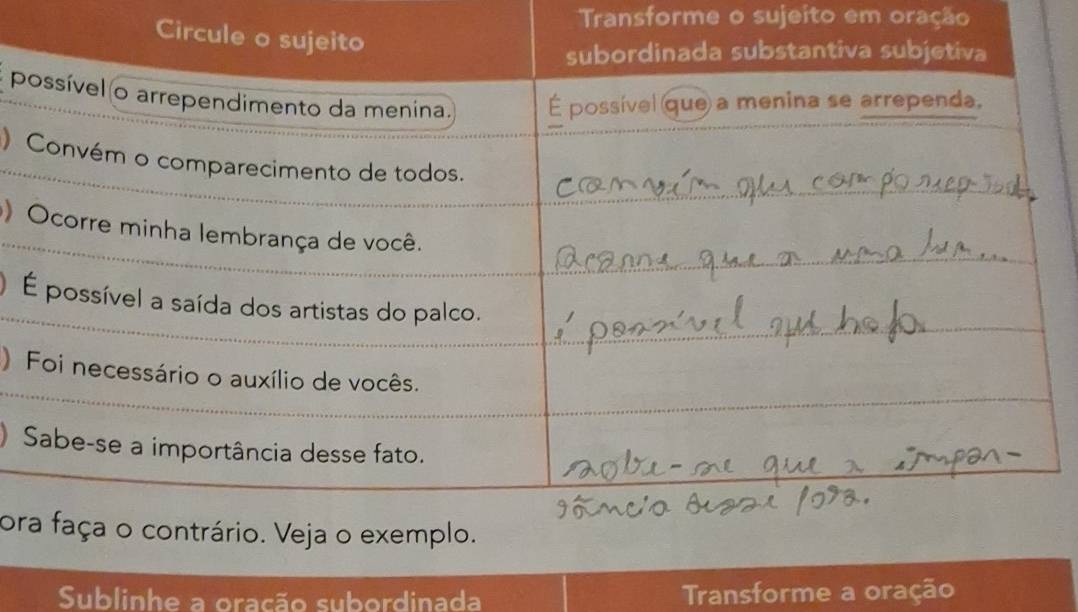 Circule o sujeito
Transforme o sujeito em oração
subordinada substantiva subjetiva
possível o arrependimento da menina.
É possível que a menina se arrependa.
) Convém o comparecimento de todos.
convém que
) Ocorre minha lembrança de você.
que a uma
) É possível a saída dos artistas do palco.
é possível que haja
) Foi necessário o auxílio de vocês.
) Sabe-se a importância desse fato.
sabe-se que a impor-
tância desse
ora faça o contrário. Veja o exemplo.
Sublinhe a oração subordinada
Transforme a oração